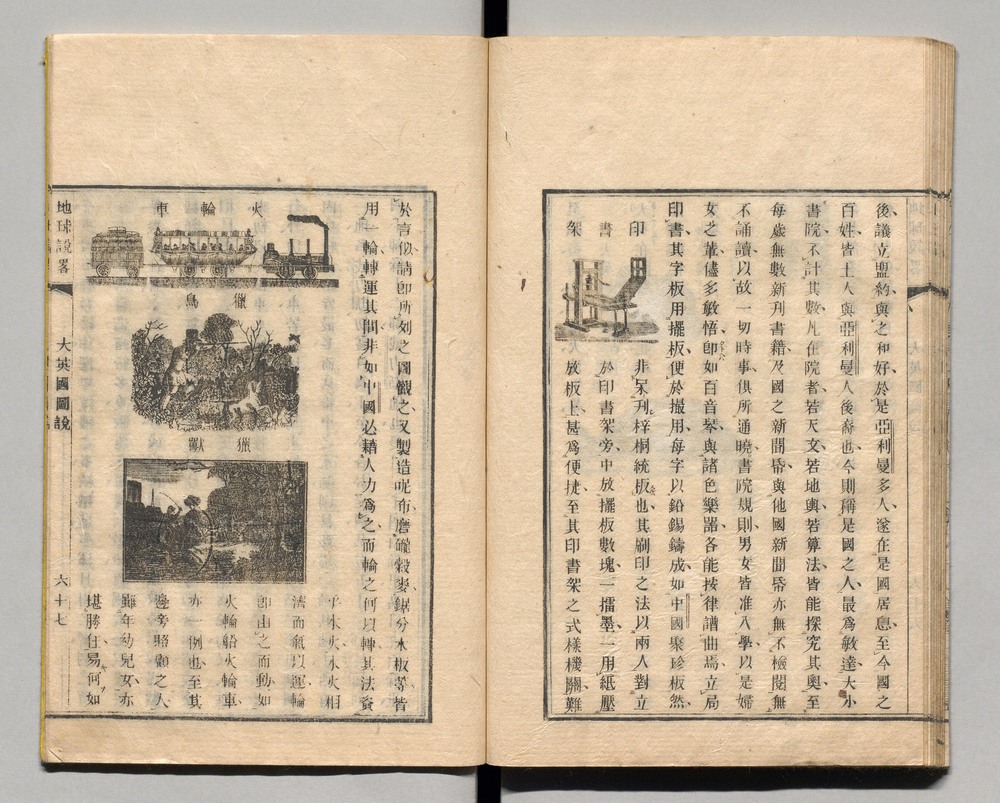 後議立盟約與之和好於是亞利曼多人遂在是國居息至今國之
百姓皆土人與亞利曼人後裔也今則稱是國之人最爲敏達大小
書院不計其數凡在院者若天文若地輿若算法皆能探究其奧至
每歲無數新刋書籍及國之新聞昏與他國新聞昏亦無不檢閱無
不誦讀以故一切時事俱所通曉書院規則男女皆准入學以是婦
女之輩儘多敏悟卽如百音琴與諸色樂器各能按律譜曲焉立局
印書其字板用擺板便於撮用每字以鉛錫鑄成如中國聚珍板然
印 非呆刋梓桐統板也其刷印之法以兩人對立
書 於印書架旁中放擺板數塊一擂墨一用紙壓
架 放板上甚爲便捷至其印書架之式樣機關難
於言似請卽所刻之圖觀之又製造呢布磨礲穀麥鋸分木板等皆
用一輪轉運其間非如中國必藉人力爲之而輪之何以轉其法資
乎水火水火相
濟而氣以運輪
卽由之而動如
火輪船火輪車
亦一例也至其
邊旁照顧之人
雖年幼兒女亦
堪勝任易何如
火輪車
獵鳥
獵獸
地球說畧
大英國圖說
六十七